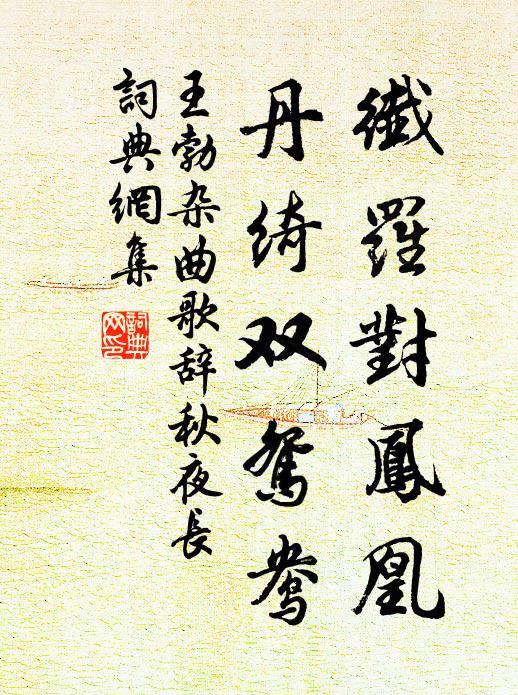 纖羅對鳳凰
丹綺双鴛鴦
王勃杂曲歌辞秋夜長
詞典網集
詞典
网印